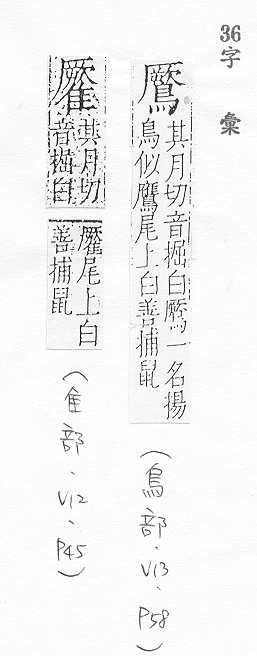 36字彙
鷢
其月切音掘白鷢一名揚
鳥似鷹尾上白善捕鼠
(鳥部、V13、P58)
其月切
音掘白
尾上白
善捕鼠
(隹部、V12、P45)